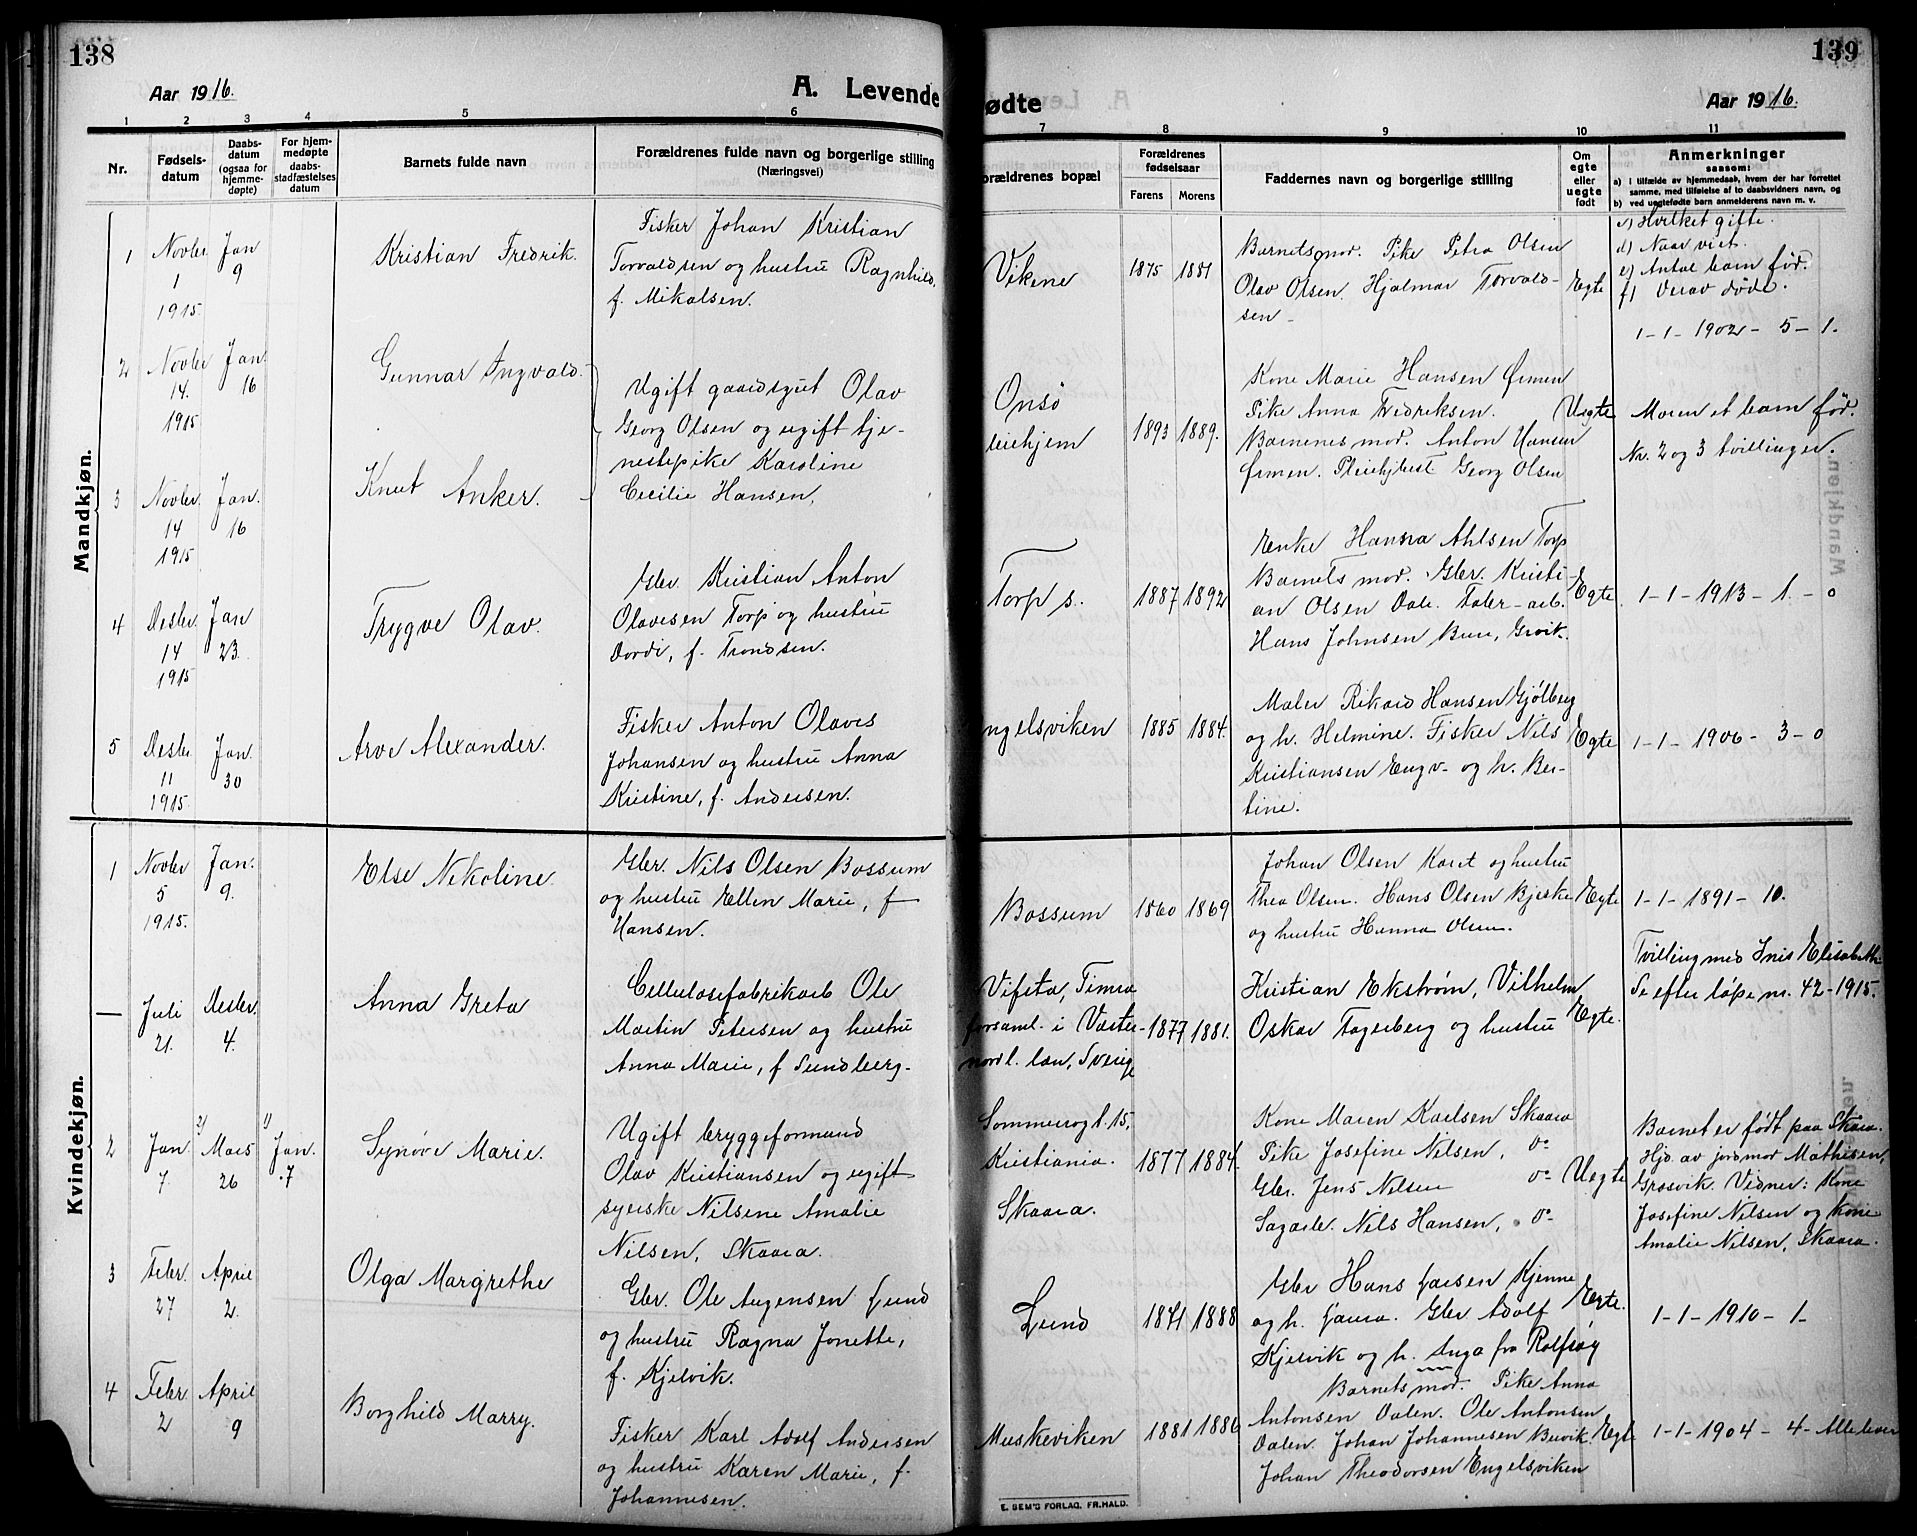 138
Aar 1916.
A. Levende
1 2 3 4 5 6
Nr.
Fødsels-
datum
Daabs-
datum
(ogsaa for
hjemme-
døpte)
For hjem-
medøpte
daabs-
stadfæstelses
datum
Barnets fulde navn
Forældrenes fulde navn og borgerlige stilling
(Næringsvei)
Mandkjøn.
1 Novbr. 1 1915 Jan 9 Kristian Fredrik.
Fisker Johan Kristian
Torvaldsen og hustru Ragnhild,
f. Mikalsen.
2 Novbr 14. 1915 Jan. 16 Gunnar Ingvald.
3 Novbr. 14 1915 Jan. 16 Knut Anker.
Ugift gaardsgut Olav
Georg Olsen og ugift tje-
nestepike Karoline
Cecilie Hansen,
4 Desbr. 14 1915 Jan 23. Trygve Olav.
Gbr. Kristian Anton
Olavesen Torp og hustru
Dordi, f. Trondsen.
5 Desbr. 11 1915. Jan. 30 Arve Alexander.
Fisker Anton Olaves
Johansen og hustru Anna
Kristine, f. Andersen.
Kvindekjøn.
1 Novbr 5 1915. Jan. 9. Else Nikoline.
Gbr. Nils Olsen Bossum
og hustru Ellen Marie, f
Hansen.
— Juli 21. Desbr. 4. Anna Greta
Cellulosefabrikarb Ole
Martin Petersen og hustru
Anna Marie, f Sundberg.
2 Jan. 7. 2) Mars 26 1) Jan. 7 Synøve Marie.
Ugift bryggeformand
Olav Kristiansen og ugift
syerske Nilsine Amalie
Nilsen, Skaara.
3 Febr. 27 April 2. Olga Margrethe
Gbr. Ole Augensen Lund
og hustru Ragna Jonette,
f. Kjelvik.
4 Febr. 2 April 9 Borghild Marry.
Fisker Karl Adolf Andersen
og hustru Karen Marie, f.
Johannesen.
139
ødte
Aar 1916.
7 8 9 10 11
orældrenes bopæl
Forældrenes
fødselsaar
Farens Morens
Faddernes navn og borgerlige stilling
Om
egte
eller
uegte
født
Anmerkninger
saasom:
a) i tilfælde av hjemmedaab, hvem der har forrettet
samme, med tilføielse af to daabsvidners navn, og
b) ved uegtefødte barn anmelderens navn m. v.
c) Hvilket gifte.
d) Naar viet.
e) Antal barn fød.
f) Derav døde.
Vikene 1875 1881
Barnets mor. Pike Petra Olsen
Olav Olsen. Hjalmar Torvald-
sen
Egte
1-1-1902-5-1.
Onsø
leiehjem 1893 1889.
Kone Marie Hansen Ørmen
Pike Anna Fredriksen.
Barnenes mor. Anton Hansen
Ørmen. Pleiehjbest Georg Olsen
Uegte
Moren et barn før.
Nr. 2 og 3 tvillinger.
Torp s. 1887 1892
Enke Hanna Ahlsen Torp
Barnets mor. Gbr. Kristi-
an Olsen Dale. Fabr-arb.
Hans Johnsen Bue,
Egte
1-1-1913-1.-0
ngelsviken 1885 1884.
Maler Rikard Hansen Gjølberg
og h. Helmine. Fisker Nils
Kristiansen Engv- og h. Ber-
tine.
Egte
1-1-1906-3-0
Bossum 1860 1869
Johan Olsen Karet og hustru
Thea Olsen. Hans Olsen Bjerke
og hustru Hanna Olsen.
Egte
1-1-1891-10.
Vifsta, Timra
forsaml. i Väster-
norrl. län, Sverig 1877 1881.
Kristian Ekstrøm, Vilhelm
Oskar Fagerberg og hustru
Egte.
Tvilling med Inis Elisabeth.
Se efter løpe nr. 42-1915.
Sommerrogt. 15,
Kristiania.
Skaara. 1877 1884.
Kone Maren Karlsen Skaara
Pike Josefine Nilsen, do
Gbr. Jens Nilsen do
Sagarb. Nils Hansen, do
Uegte
Barnet er født paa Skaara.
Hjd. av jordmor Mathisen,
Græsvik. Vidner: Kone
Josefine Nilsen og kone
Amalie Nilsen, Skaara.
Lund 1871 1888
Gbr Hans Larsen Kjenne
og h. Laura. Gbr Adolf
Kjelvik og h. Inga fra Rolfsøy
Egte.
1-1-1910-1-
Muskeviken 1881 1886
Barnets mor. Pike Anna
Antonsen Dalen. Ole Antonsen
Dalen. Johan Johannesen Buvik.
Johan Theodorsen Engelsviken
Egte
1-1-1904-4- Alle lever
E. SEM'S FORLAG, FR.HALD.